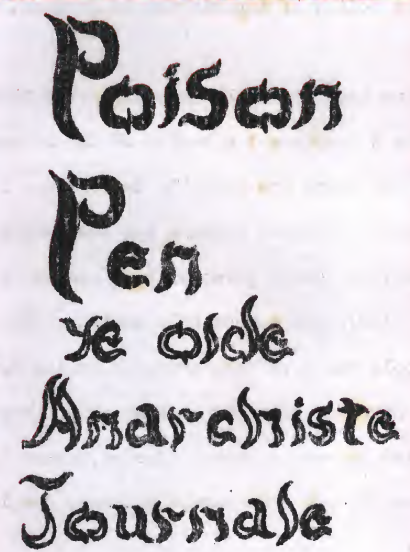 Poison
Pen
ye olde
Anarchiste
Journale